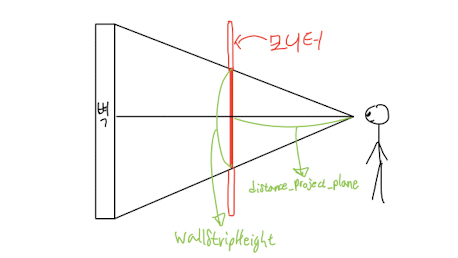 모니터
벽
distance_project_plane
WallStripHeight